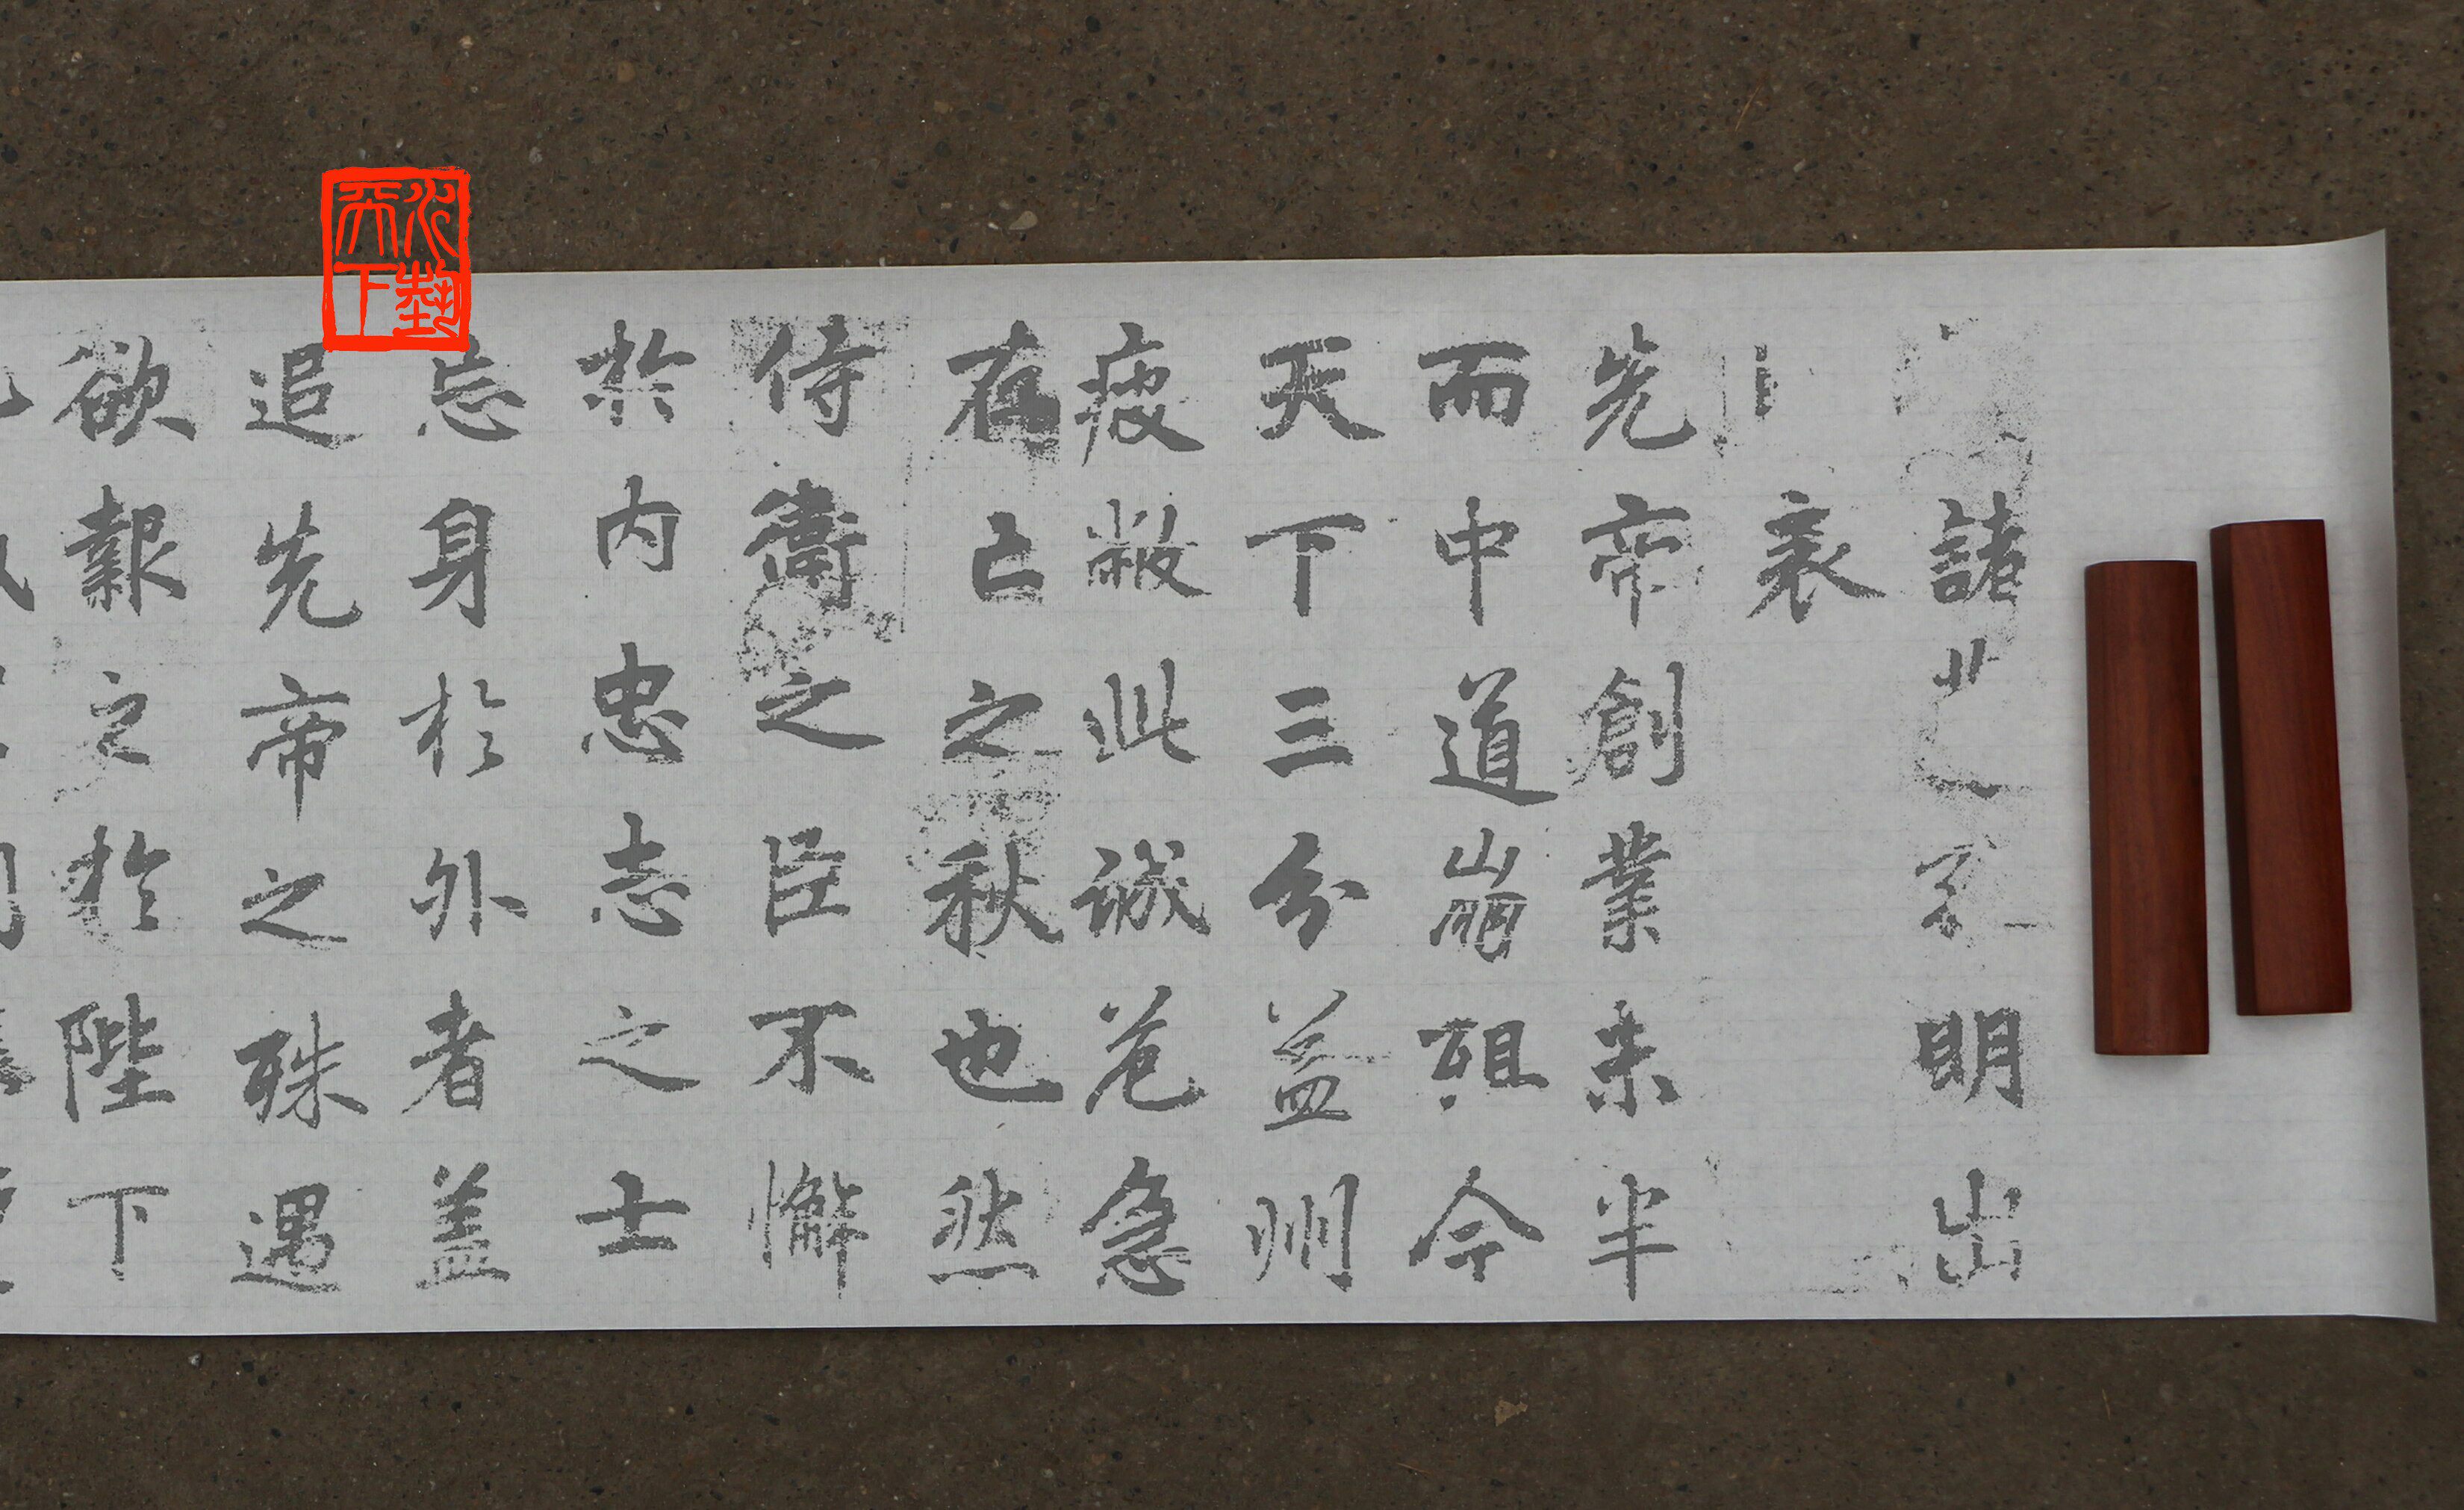 諸明出
表
先帝創業未半
而中道崩殂今
天下三分益州
疲敝此誠危急
存亡之秋也然
侍衛之臣不懈
於内忠志之士
忘身於外者盖
追先帝之殊遇
欲報之於陛下
天下